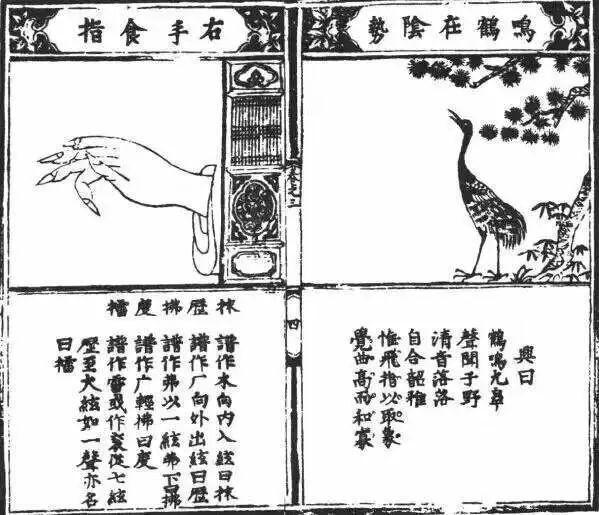 鳴鶴在陰勢
興曰
鶴鳴九皐
聲聞于野
清音落落
自合韶雅
惟飛指以取象
覺曲高而和寡
四
右手食指
抹 譜作木向內入絃曰抹
歷 譜作厂向外出絃曰歷
拂 譜作弗以一絃弗下曰拂
度 譜作广輕拂曰度
擂 譜作雷或作從七絃
歷至大絃如一聲亦名
曰擂